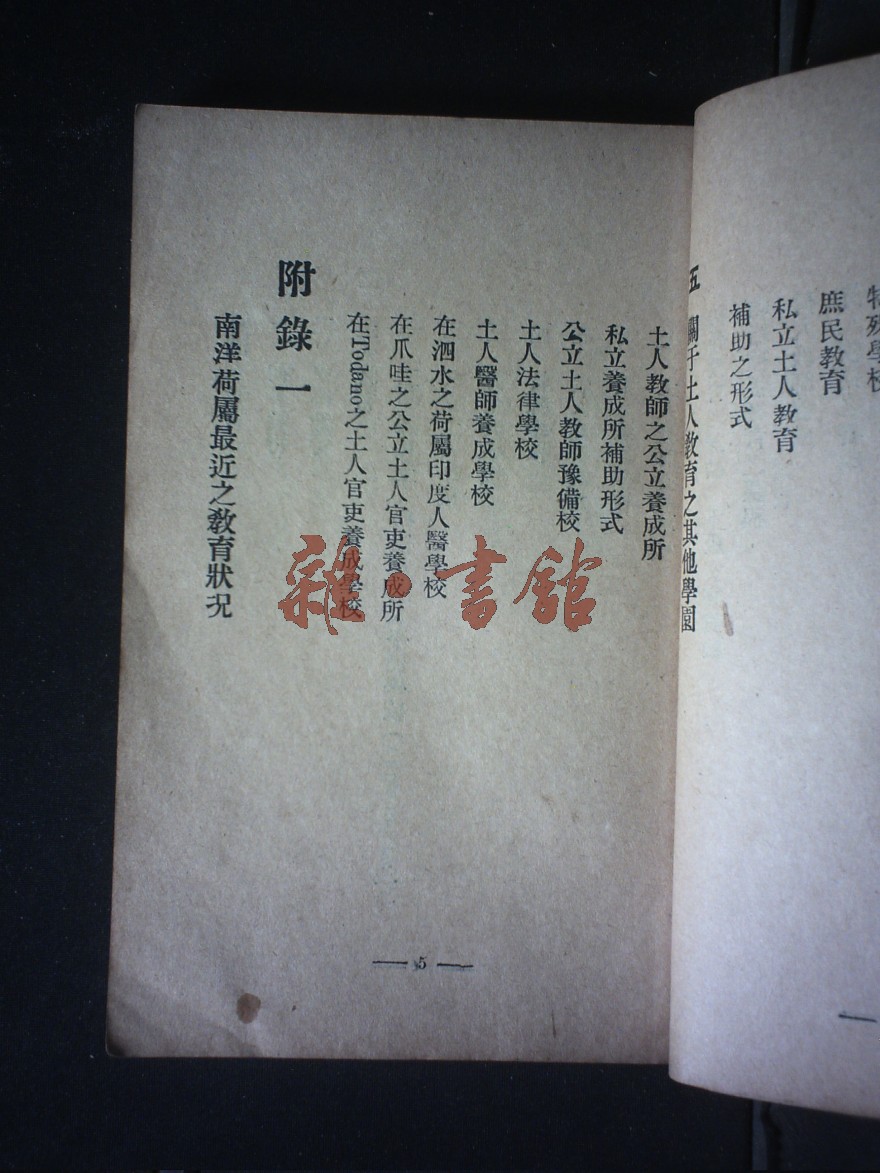 特殊學校
庶民教育
私立土人教育
補助之形式
五 關于土人教育之其他學園
土人教師之公立養成所
私立養成所補助形式
公立土人教師豫備校
土人法律學校
土人醫師養成學校
在泗水之荷屬印度人醫學校
在爪哇之公立土人官吏養成所
在Todano之土人官吏養成學校
附錄一
南洋荷屬最近之教育狀況
5
雜·書館